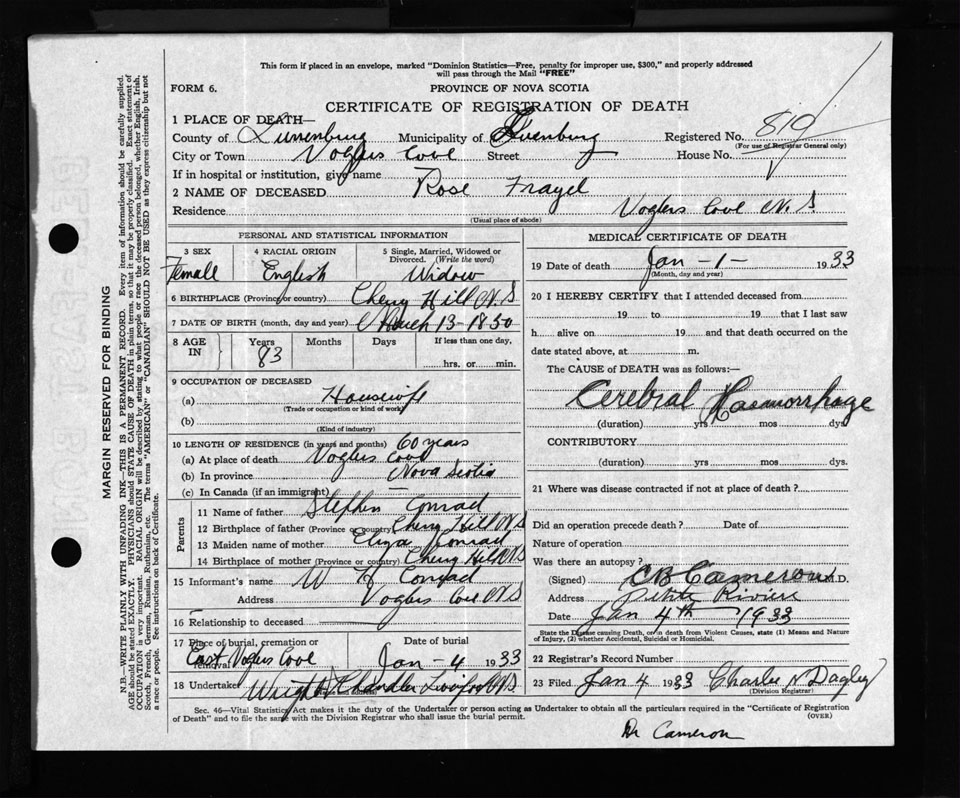 This form if placed in an envelope, marked "Dominion Statistics—Free, penalty for improper use, $300," and properly addressed
will pass through the Mail "FREE"
FORM 6.
PROVINCE OF NOVA SCOTIA
CERTIFICATE OF REGISTRATION OF DEATH
1 PLACE OF DEATH—
County of Lunenburg Municipality of Lunenburg Registered No. 819
(For use of Registrar General only)
City or Town Voglers Cove Street House No.
If in hospital or institution, give name
2 NAME OF DECEASED Rose Frayel
Residence Voglers Cove N.S
(Usual place of abode)
PERSONAL AND STATISTICAL INFORMATION
3 SEX 4 RACIAL ORIGIN 5 Single, Married, Widowed or
Divorced. (Write the word)
Female English Widow
6 BIRTHPLACE (Province or country) Cherry Hill N.S
7 DATE OF BIRTH (month, day and year) March 13-1850
8 AGE IN Years Months Days If less than one day,
83 hrs. or min.
9 OCCUPATION OF DECEASED
(a) Housewife
(Trade or occupation or kind of work)
(b)
(Kind of industry)
10 LENGTH OF RESIDENCE (in years and months) 60 years
(a) At place of death Voglers Cove
(b) In province Nova Scotia
(c) In Canada (if an immigrant)
Parents
11 Name of father Stephen Conrad
12 Birthplace of father (Province or country) Cherry Hill N.S
13 Maiden name of mother Eliza Conrad
14 Birthplace of mother (Province or country) Cherry Hill N.S
15 Informant's name W H Conrad
Address Voglers Cove N.S
16 Relationship to deceased
17 Place of burial, cremation or removal Date of burial
East Voglers Cove Jan-4 1933
18 Undertaker Wright Chandler Liverpool N.S
MEDICAL CERTIFICATE OF DEATH
19 Date of death Jan-1- 1933
(Month, day and year)
20 I HEREBY CERTIFY that I attended deceased from
19 to 19 that I last saw
h alive on 19 and that death occurred on the
date stated above, at m.
The CAUSE of DEATH was as follows:—
Cerebral Haemorrhage
(duration) yrs. mos. dys.
CONTRIBUTORY
(duration) yrs. mos. dys.
21 Where was disease contracted if not at place of death?
Did an operation precede death? Date of
Nature of operation
Was there an autopsy?
(Signed) C B Cameron M.D.
Address Petite Riviere
Date Jan 4th 1933
State the Disease causing Death, or in death from Violent Causes, state (1) Means and Nature
of Injury, (2) whether Accidental, Suicidal or Homicidal.
22 Registrar's Record Number
23 Filed Jan 4 1933 Charles N Dagley
(Division Registrar)
Sec. 46—Vital Statistics Act makes it the duty of the Undertaker or person acting as Undertaker to obtain all the particulars required in the "Certificate of Registration
of Death" and to file the same with the Division Registrar who shall issue the burial permit.
(OVER)
Dr Cameron
MARGIN RESERVED FOR BINDING
N.B.—WRITE PLAINLY WITH UNFADING INK—THIS IS A PERMANENT RECORD. Every item of information should be carefully supplied.
AGE should be stated EXACTLY. PHYSICIANS should STATE CAUSE OF DEATH in plain terms, so that it may be properly classified. Exact statement of
OCCUPATION is very important. RACIAL ORIGIN will be described by stating to what people or race the deceased person belonged, whether English, Irish,
Scotch, French, German, Russian, Ruthenian, etc. The terms "AMERICAN" or "CANADIAN" SHOULD NOT BE USED as they express citizenship but not
a race or people. See instructions on back of Certificate.